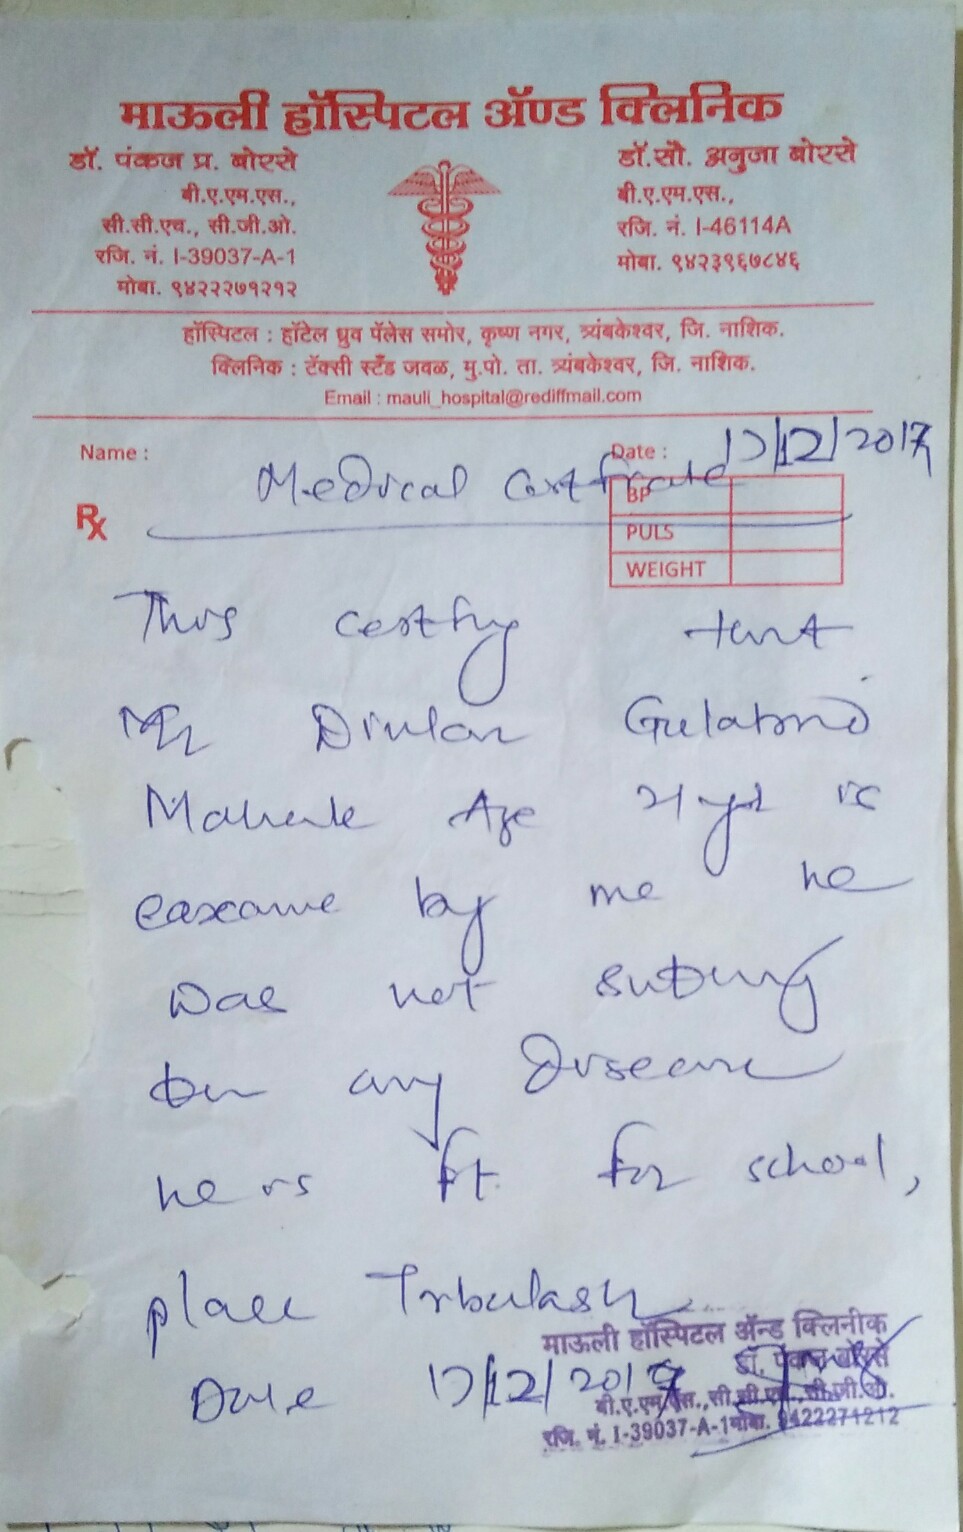 माऊली हॉस्पिटल ॲण्ड क्लिनिक
डॉ. पंकज प्र. बोरसे
बी.ए.एम.एस.,
सी.सी.एच., सी.जी.ओ.
रजि. नं. I-39037-A-1
मोबा. ९४२२२७१२१२
डॉ.सौ. अनुजा बोरसे
बी.ए.एम.एस.,
रजि. नं. I-46114A
मोबा. ९४२३९६७८४६
हॉस्पिटल : हॉटेल ध्रुव पॅलेस समोर, कृष्ण नगर, त्र्यंबकेश्वर, जि. नाशिक.
क्लिनिक : टॅक्सी स्टँड जवळ, मु.पो. ता. त्र्यंबकेश्वर, जि. नाशिक.
Email : mauli_hospital@rediffmail.com
Name :
Date : 17/12/2017
Medical Certificate
Rx
BP
PULS
WEIGHT
This certify that
Mr
Age 21 yrs is
by me he
was not
any
he is fit for school,
place
Date 17/12/2017
माऊली हॉस्पिटल ॲन्ड क्लिनीक
डॉ. पंकज बोरसे
बी.ए.एम.एस.,सी.सी.एच.,सी.जी.ओ.
रजि. नं. I-39037-A-1मोबा. 9422271212